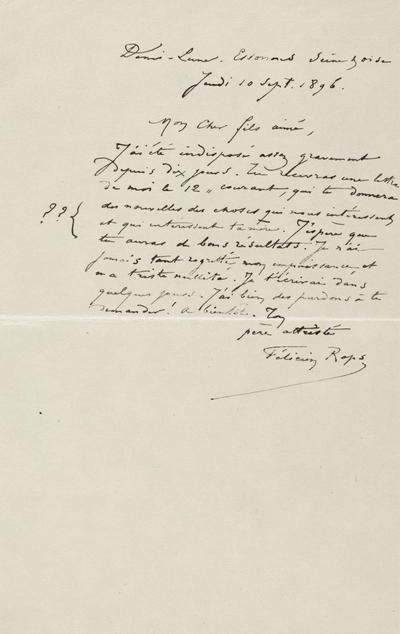 Demi-Lune. Essonnes Seine & oise
Jeudi 10 Sept. 1896.
Mon Cher fils aimé,
J'ai été indisposé assez gravement
depuis dix jours. Tu recevras une lettre
de moi le 12 " courant, qui te donnera
?? { des nouvelles des choses qui nous intéressent
et qui intéressent ta mère. J'espère que
tu auras de bons résultats. Je n'ai
jamais tant regretté mon impuissance, et
ma triste nullité. Je t'écrirai dans
quelques jours. J'ai bien des pardons à te
demander! a bientôt. Ton
père attristé
Félicien Rops